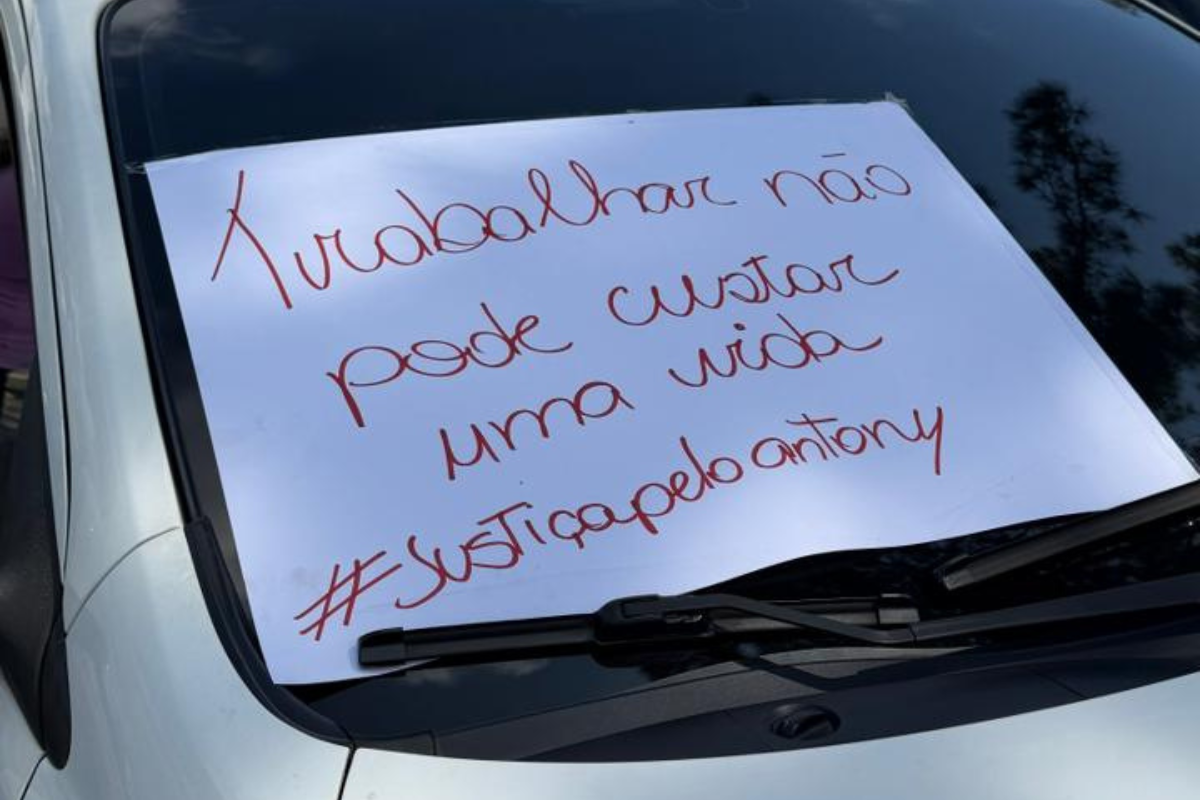 Trabalhar não
pode custar
uma vida
#Justiçapelo antony